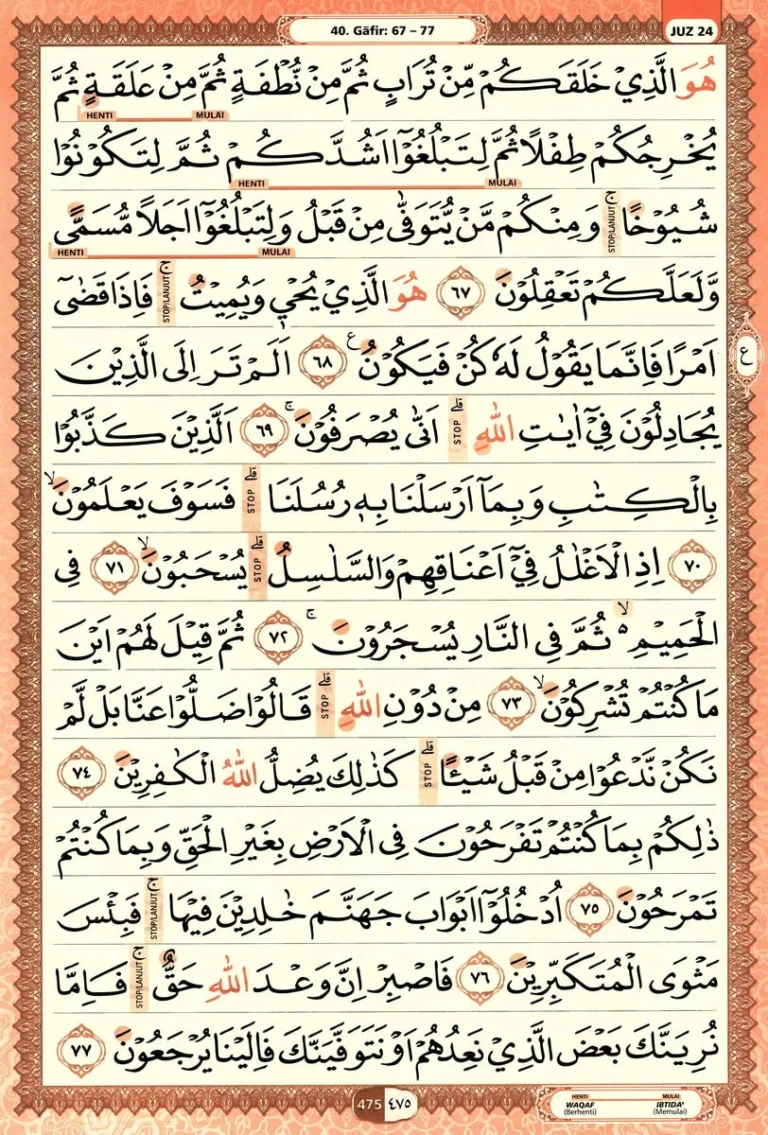 40. Gāfir: 67 – 77
JUZ 24
هُوَ الَّذِيْ خَلَقَكُمْ مِّنْ تُرَابٍ ثُمَّ مِنْ نُّطْفَةٍ ثُمَّ مِنْ عَلَقَةٍ ثُمَّ
HENTI MULAI
يُخْرِجُكُمْ طِفْلًا ثُمَّ لِتَبْلُغُوْٓا اَشُدَّكُمْ ثُمَّ لِتَكُوْنُوْا
HENTI MULAI
شُيُوْخًا ۚ STOP/LANJUT وَمِنْكُمْ مَّنْ يُّتَوَفّٰى مِنْ قَبْلُ وَلِتَبْلُغُوْٓا اَجَلًا مُّسَمًّى
HENTI MULAI
وَّلَعَلَّكُمْ تَعْقِلُوْنَ ٦٧ هُوَ الَّذِيْ يُحْيٖ وَيُمِيْتُ ۚ STOP/LANJUT فَاِذَا قَضٰىٓ
اَمْرًا فَاِنَّمَا يَقُوْلُ لَهٗ كُنْ فَيَكُوْنُ ࣖ ٦٨ اَلَمْ تَرَ اِلَى الَّذِيْنَ
ع
يُجَادِلُوْنَ فِيْٓ اٰيٰتِ اللّٰهِ ۗ STOP اَنّٰى يُصْرَفُوْنَ ۚ ٦٩ اَلَّذِيْنَ كَذَّبُوْا
بِالْكِتٰبِ وَبِمَآ اَرْسَلْنَا بِهٖ رُسُلَنَا ۗ STOP فَسَوْفَ يَعْلَمُوْنَ ۙ
٧٠ اِذِ الْاَغْلٰلُ فِيْٓ اَعْنَاقِهِمْ وَالسَّلٰسِلُ ۗ STOP يُسْحَبُوْنَ ۙ ٧١ فِى
الْحَمِيْمِ ەۙ ثُمَّ فِى النَّارِ يُسْجَرُوْنَ ۚ ٧٢ ثُمَّ قِيْلَ لَهُمْ اَيْنَ
مَا كُنْتُمْ تُشْرِكُوْنَ ۙ ٧٣ مِنْ دُوْنِ اللّٰهِ ۗ STOP قَالُوْا ضَلُّوْا عَنَّا بَلْ لَّمْ
نَكُنْ نَّدْعُوْا مِنْ قَبْلُ شَيْـًٔا ۗ STOP كَذٰلِكَ يُضِلُّ اللّٰهُ الْكٰفِرِيْنَ ٧٤
ذٰلِكُمْ بِمَا كُنْتُمْ تَفْرَحُوْنَ فِى الْاَرْضِ بِغَيْرِ الْحَقِّ وَبِمَا كُنْتُمْ
تَمْرَحُوْنَ ٧٥ اُدْخُلُوْٓا اَبْوَابَ جَهَنَّمَ خٰلِدِيْنَ فِيْهَا ۚ STOP/LANJUT فَبِئْسَ
مَثْوَى الْمُتَكَبِّرِيْنَ ٧٦ فَاصْبِرْ اِنَّ وَعْدَ اللّٰهِ حَقٌّ ۚ STOP/LANJUT فَاِمَّا
نُرِيَنَّكَ بَعْضَ الَّذِيْ نَعِدُهُمْ اَوْ نَتَوَفَّيَنَّكَ فَاِلَيْنَا يُرْجَعُوْنَ ٧٧
475 ٤٧٥
HENTI MULAI
WAQAF IBTIDA'
(Berhenti) (Memulai)